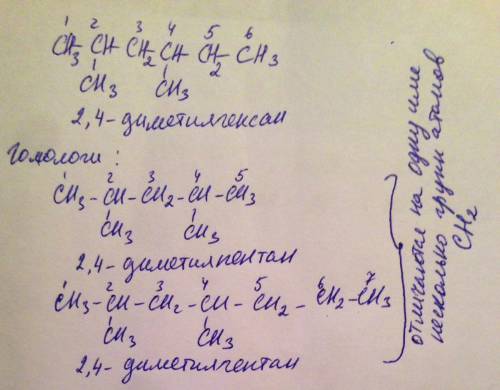 1 2 3 4 5 6
CH3 - CH - CH2 - CH - CH2 - CH3
CH3 CH3
2,4-диметилгексан
Гомологи:
1 2 3 4 5
CH3 - CH - CH2 - CH - CH3
CH3 CH3
2,4-диметилпентан
1 2 3 4 5 6 7
CH3 - CH - CH2 - CH - CH2 - CH2 - CH3
CH3 CH3
2,4-диметилгептан
отличаются на одну или
несколько групп атомов
CH2